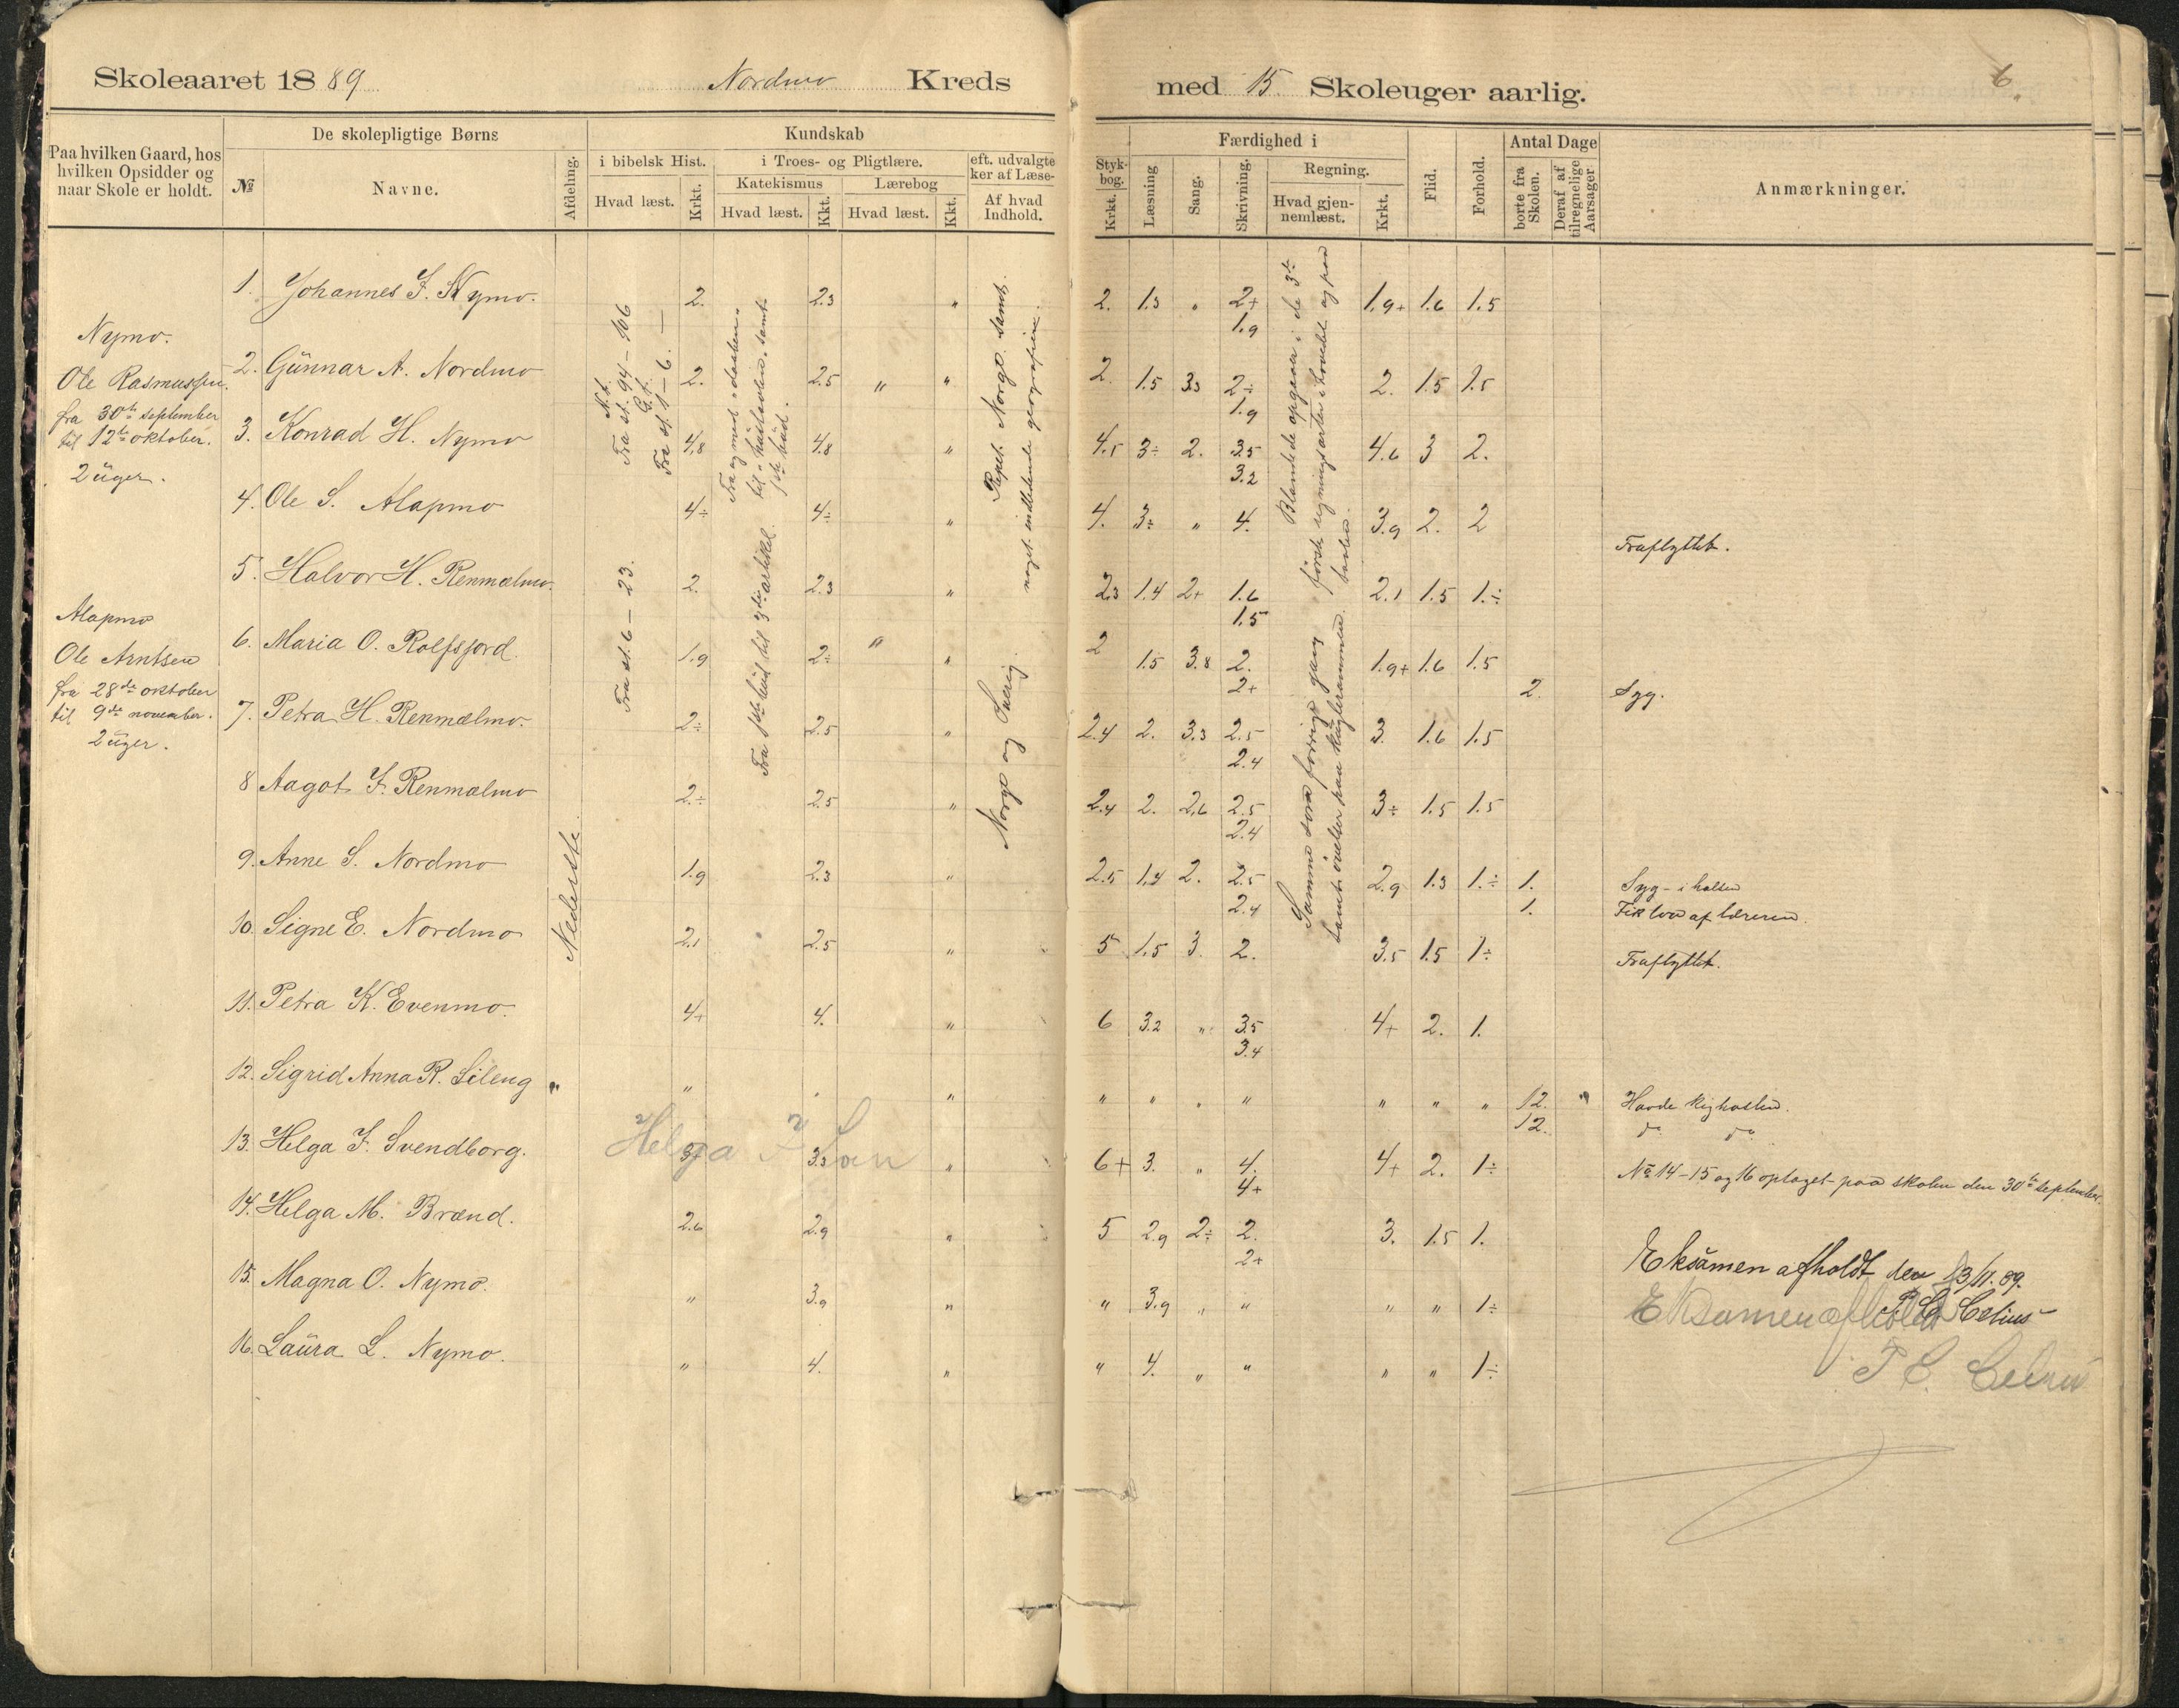 Skoleaaret 1889 Nordmo Kreds
Paa hvilken Gaard, hos
hvilken Opsidder og
naar Skole er holdt.
De skolepligtige Børns
№
Navne.
Afdeling.
Kundskab
i bibelsk Hist.
Hvad læst.
Krkt.
i Troes- og Pligtlære.
Katekismus
Hvad læst.
Kkt.
Lærebog
Hvad læst.
Kkt.
eft. udvalgte
ker af Læse-
Af hvad
Indhold.
Nymo.
Ole Rasmussen.
fra 30te september
til 12te oktober.
2 uger.
Alapmo
Ole Arntsen
fra 28de oktober
til 9de november.
2 uger.
1. Johannes F. Nymo. 2. 2.3 "
2. Gunnar A. Nordmo 2. 2.5 " "
3. Konrad H. Nymo 4.8 4.8 "
4. Ole S. Alapmo 4÷ 4÷ "
5. Halvor H. Renmælmo. 2. 2.3 "
6. Maria O. Rolfsjord. 1.9 2÷ " "
7. Petra H. Renmælmo. 2÷ 2.5 "
8 Aagot F. Renmælmo 2.÷ 2.5 "
9. Anne S. Nordmo 1.9 2.3 "
10. Signe E. Nordmo 2.1 2.5 "
11. Petra K. Evenmo. 4+ 4. "
12. Sigrid Anna R. Lileng " " "
13. Helga F. Svendborg. 3+ 3.3 "
14. Helga M. Brænd. 2.6 2.9 "
15. Magna O. Nymo. " 3.9 "
16. Laura L. Nymo. " 4. "
Nederste.
N.t.
Fra st. 94 - 106
G.t.
Fra st. 1 - 6.
Fra st. 6 - 23.
Fra og med "daaben"
til "hustavlen" samt
1ste bud.
Fra 1ste bud til 3die artikel.
Repet. Norge samt
noget indledende geografien.
Norge og Sverig.
Helga F
med 15 Skoleuger aarlig.
6.
Styk-
bog.
Krkt.
Færdighed i
Læsning
Sang.
Skrivning.
Regning.
Hvad gjen-
nemlæst.
Krkt.
Flid.
Forhold.
Antal Dage
borte fra
Skolen.
Deraf af
tilregnelige
Aarsager
Anmærkninger.
2. 1.3 " 2+ 1.9+ 1.6 1.5
1.9
2. 1.5 3.3 2÷ 2. 1.5 1.5
1.9
4.5 3÷ 2. 3.5 4.6 3 2.
3.2
4. 3÷ " 4. 3.9 2. 2 Fraflyttet.
2.3 1.4 2+ 1.6 2.1 1.5 1.÷
1.5
2 1.5 3.8 2. 1.9+ 1.6 1.5
2+ 2. Syg.
2.4 2. 3.3 2.5 3. 1.6 1.5
2.4
2.4 2. 2.6 2.5 3÷ 1.5 1.5
2.4
2.5 1.4 2. 2.5 2.9 1.3 1.÷ 1. Syg - i halsen
2.4 1. Fik lov af læreren.
5 1.5 3. 2. 3.5 1.5 1÷ Fraflyttet.
6 3.2 " 3.5 4+ 2. 1.
3.4
" " " " " " " 12. " Havde kighosten.
12. do do
6+ 3. " 4. 4+ 2. 1÷
4+
No 14 - 15 og 16 optaget paa skolen den 30te september.
5 2.9 2÷ 2. 3. 1.5 1.
2+
" 3.9 " " " " 1÷
" 4. " " " " 1÷
Blandede opgaver i de 3de
første regningsarter i hovedet og paa
tavlen.
Samme som forrige gang
samt øvelser paa kuglerammen.
Eksamen afholdt den 13/11. 89.
P. C. Celius
Eksamen afholdt
P C. Celius